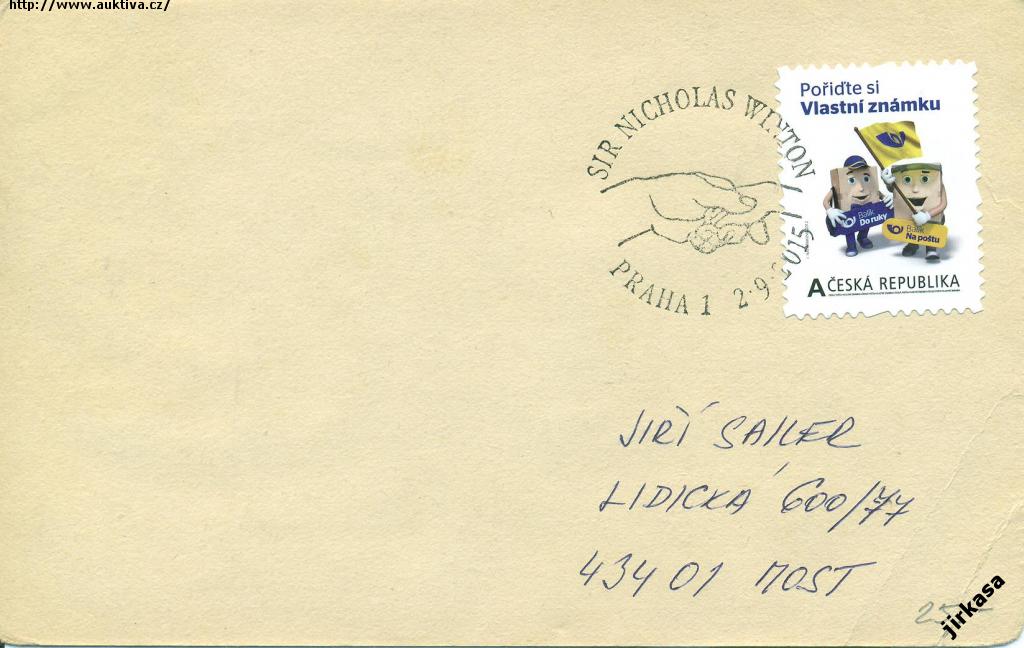 http://www.auktiva.cz/
SIR NICHOLAS WINTON
PRAHA 1 2.9.2015
Pořiďte si
Vlastní známku
Balík
Do ruky
Balík
Na poštu
A ČESKÁ REPUBLIKA
JIŘÍ SAILER
LIDICKÁ 600/77
434 01 MOST
jirkasa